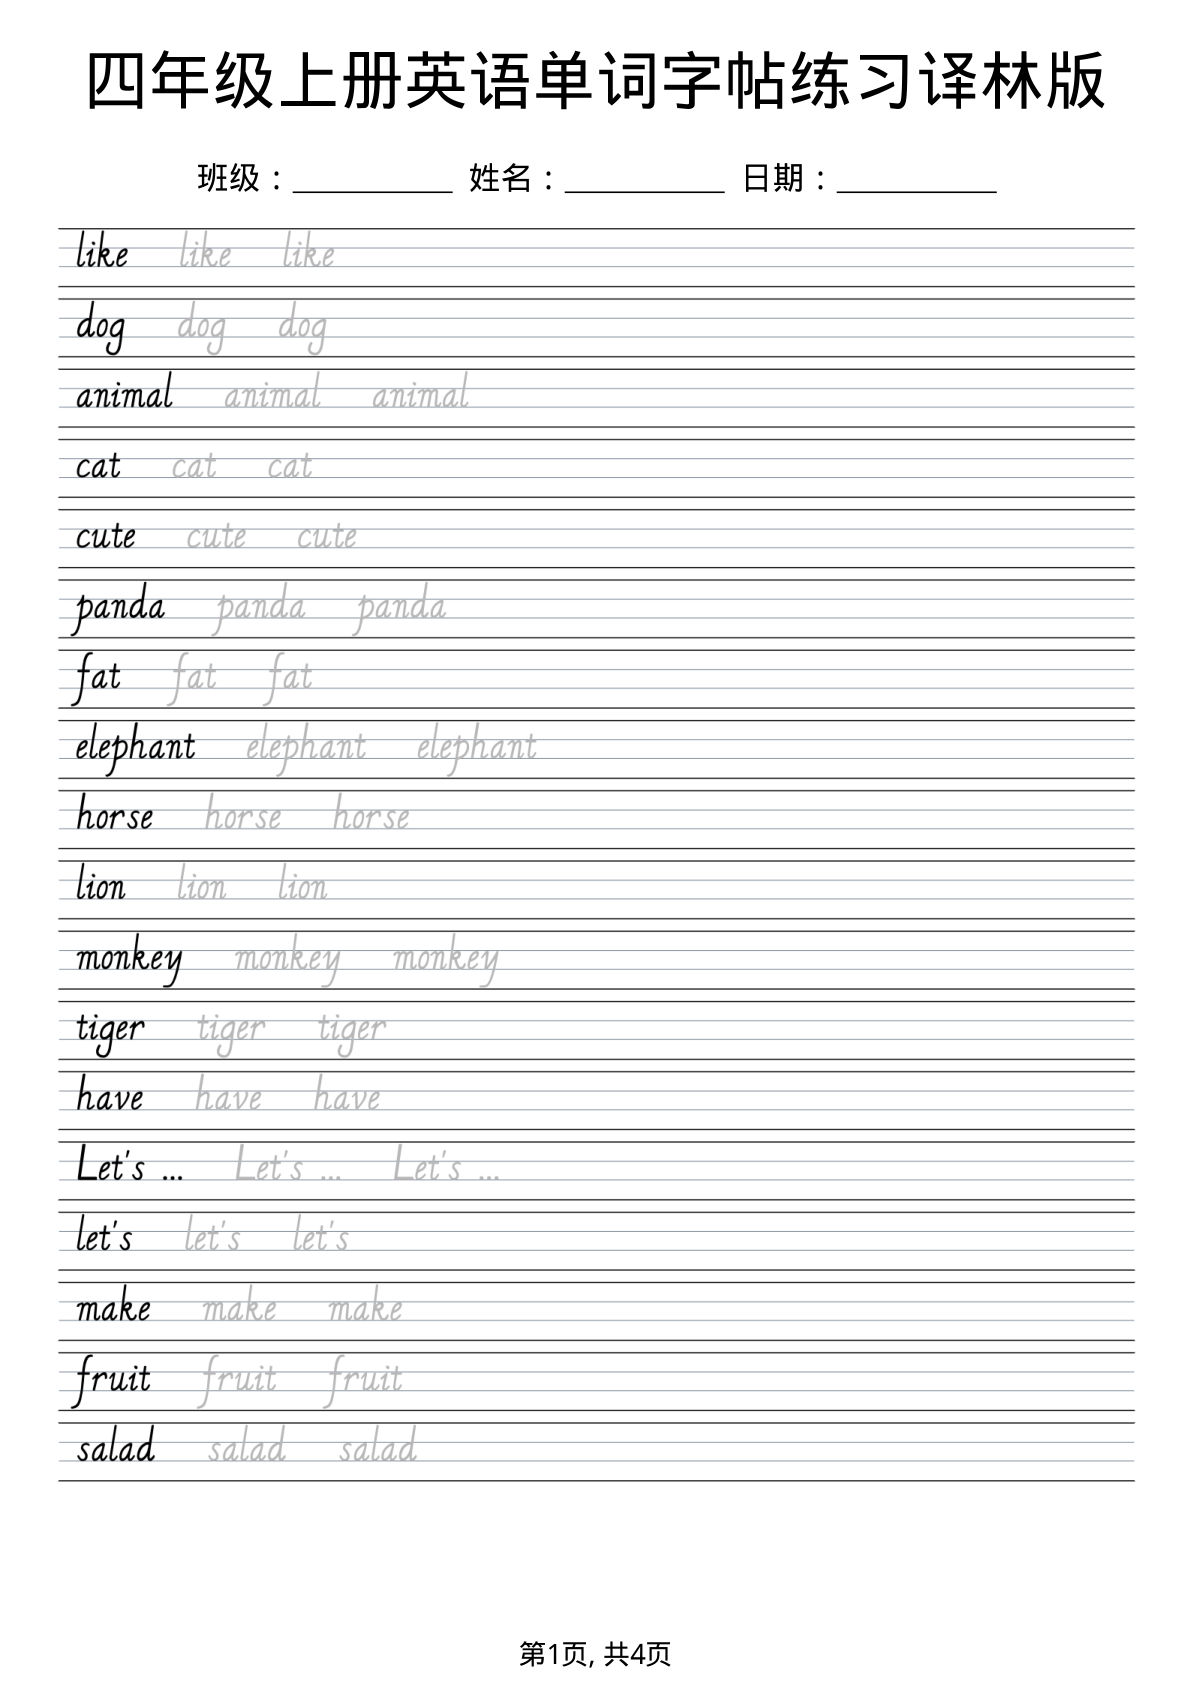 四年级上册英语单词字帖练习译林版
班级：__________ 姓名：__________ 日期：__________
like like like
dog dog dog
animal animal animal
cat cat cat
cute cute cute
panda panda panda
fat fat fat
elephant elephant elephant
horse horse horse
lion lion lion
monkey monkey monkey
tiger tiger tiger
have have have
Let's ... Let's ... Let's ...
let's let's let's
make make make
fruit fruit fruit
salad salad salad
第1页, 共4页